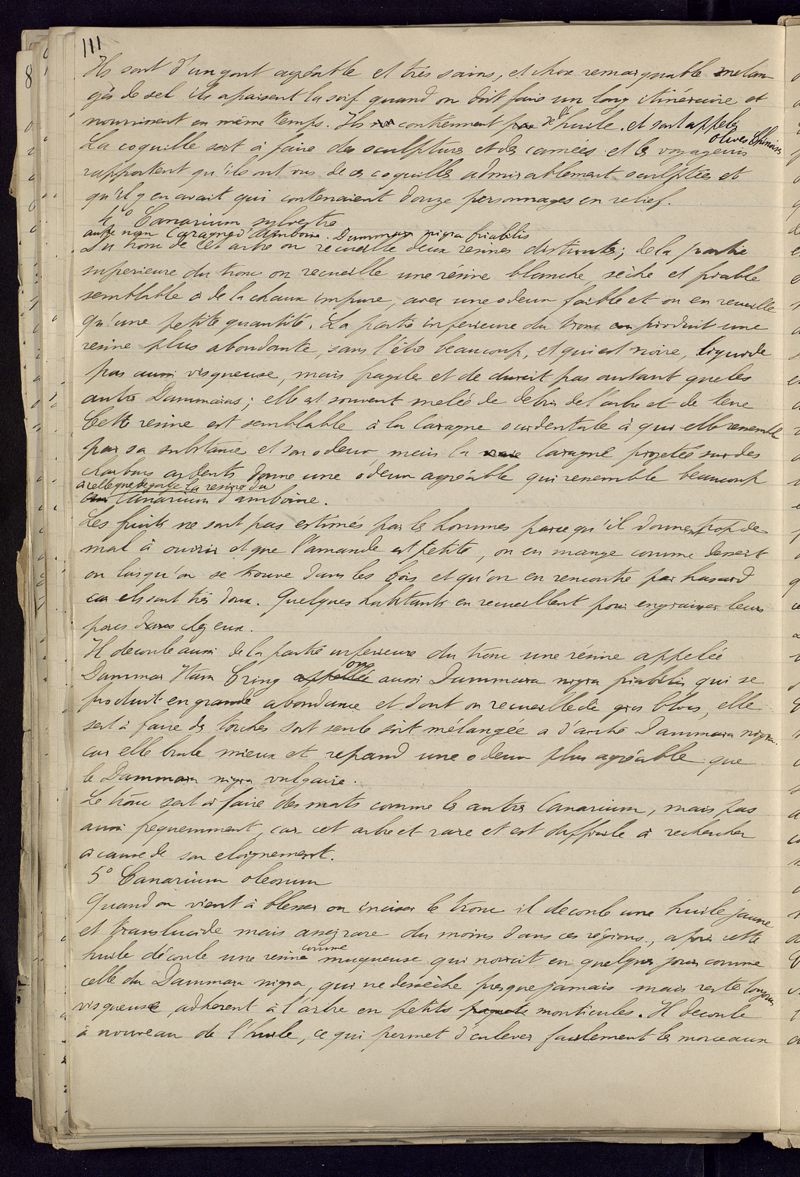 111
Ils sont d'un gout agréable et très sains, et chose remarquable melan
gés de sel ils apaisent la soif quand on doit faire un long itinéraire et
nourrissent en même temps. Ils contiennent de l'huile et sont appelés
olives Chinoises
La coquille sert à faire des sculptures et des camées et les voyageurs
rapportent qu'ils ont vus de ces coquilles admirablement sculptées et
qu'il y en avait qui contenaient douze personnages en relief.
4° Canarium sylvestre
autre nom Caragne d'Amboine. Dammara nigra friabilis
Du tronc de cet arbre on recueille deux resines distinctes; de la partie
superieure du tronc on recueille une résine blanche, sèche et friable
semblable à de la chaux impure, avec une odeur faible et on en recueille
qu'une petite quantité. La partie inferieure du tronc produit une
resine plus abondante, sans l'être beaucoup, et qui est noire, liquide
pas aussi visqueuse, mais fragile et ne durcit pas autant que les
autres Dammaras; elle est souvent melée de debris de l'arbre et de terre
Cette resine est semblable à la caragne occidentale à qui elle ressemble
par sa substance et son odeur mais la Caragne projetée sur des
charbons ardents donne une odeur agréable qui ressemble beaucoup
à celle que repand la resine du
Canarium d'amboine.
Les fruits ne sont pas estimés par les hommes parce qu'il donnent trop de
mal à ouvrir et que l'amande est petite, on en mange comme dessert
ou lorsqu'on se trouve dans les bois et qu'on en rencontre par hasard
car ils sont très doux. Quelques habitants en recueillent pour engraisser leurs
porcs chez eux.
Il decoule aussi de la partie inferieure du tronc une résine appelée
Dammar Itam Cring ou appellée aussi Dammara nigra friabilis qui se
produit en grande abondance et dont on recueille de gros blocs, elle
sert à faire des torches soit seule soit mélangée a d'autre Dammara nigra.
car elle brule mieux et repand une odeur plus agréable que
le Dammara nigra vulgaire.
Le tronc sert à faire des mats comme les autres Canarium, mais pas
aussi frequemment, car cet arbre est rare et est difficile à rechercher
à cause de son eloignement.
5° Canarium oleosum
Quand on vient à blesser ou inciser le tronc il decoule une huile jaune
et translucide mais assez rare du moins dans ces régions, après cette
huile découle une resine comme muqueuse qui noircit en quelques jours comme
celle du Dammara nigra, qui ne dessèche presque jamais mais reste toujours
visqueuse, adherent à l'arbre en petits monticules. Il decoule
à nouveau de l'huile, ce qui permet d'enlever facilement les morceaux